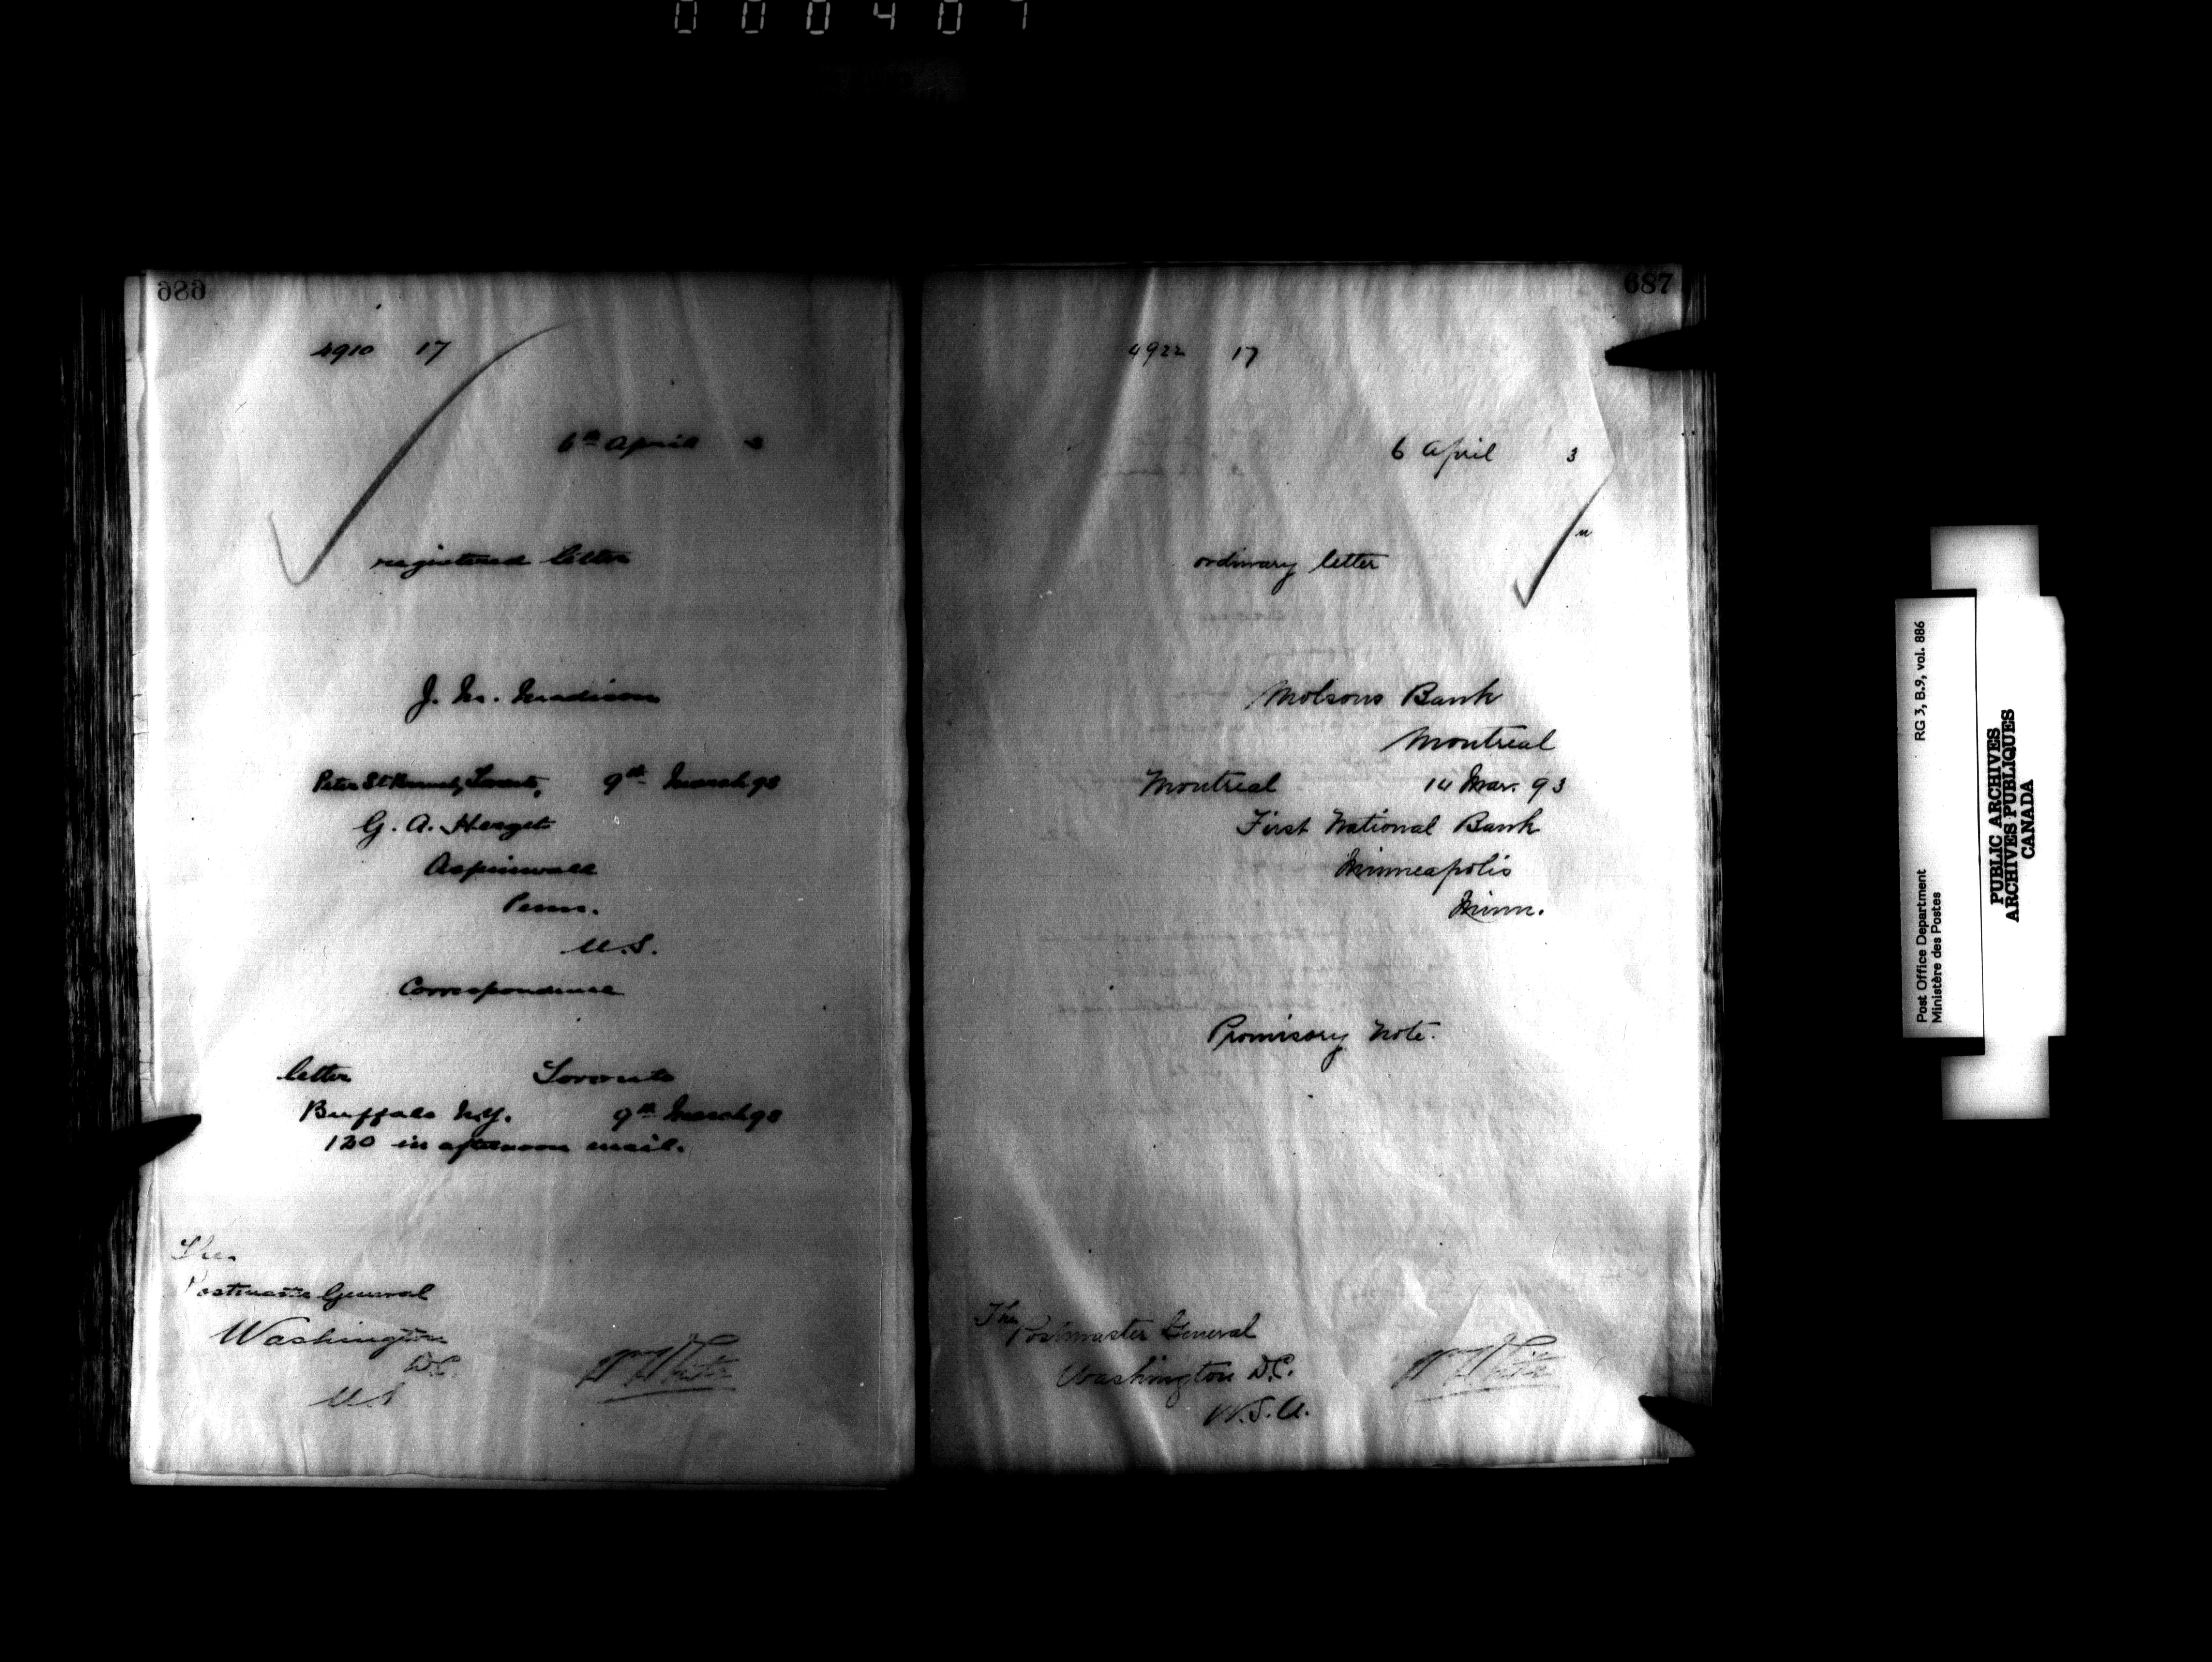 000407
686
4910 17
6th April 3
registered letter
J. M. Madison
Peter St. Toronto, 9th March 93
G. A. Herget
Aspinwall
Penn.
U.S.
Correspondence
letter Toronto
Buffalo N.Y. 9th March 93
120 in afternoon mail.
The
Postmaster General
Washington
D.C.
U.S
Wm White
687
4922 17
6 April 3
ordinary letter
Molsons Bank
Montreal
Montreal 14 Mar. 93
First National Bank
Minneapolis
Minn.
Promisory Note.
The
Postmaster General
Washington D.C.
U.S.A.
Wm White
Post Office Department RG 3, B.9, vol. 886
Ministère des Postes
PUBLIC ARCHIVES
ARCHIVES PUBLIQUES
CANADA